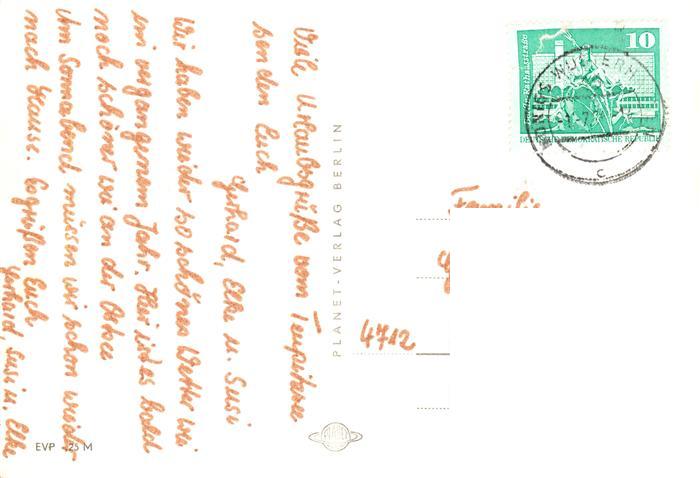 Viele Urlaubsgrüße vom Teupitzsee
senden Euch
Gerhard, Elke u. Susi
Wir haben wieder so schönes Wetter wie
im vergangenem Jahr. Hier ist es bald
noch schöner wie an der Ostsee
Am Sonnabend müssen wir schon wieder
nach Hause. Es grüßen Euch
Gerhard, Susi u. Elke
PLANET-VERLAG BERLIN
EVP -,25 M
10
Berlin, Rathausstraße
DEUTSCHE DEMOKRATISCHE REPUBLIK
KÖNIGS WUSTERH
c
Familie
4712
PLANET